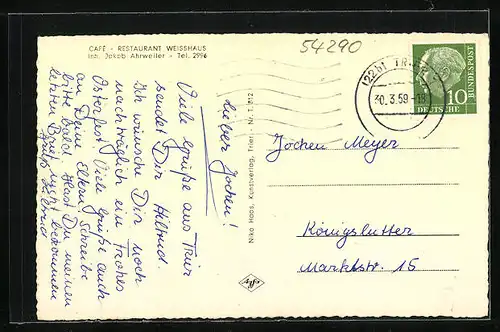 CAFÉ - RESTAURANT WEISSHAUS
Inh. Jakob Ahrweiler - Tel. 2996
54290
Lieber Jochen!
Viele Grüße aus Trier
sendet Dir Hiltrud.
Ich wünsche Dir noch
nachträglich ein frohes
Osterfest. Viele Grüße auch
an Deine Eltern. Schreibe
bitte bald. Hast Du meinen
letzten Brief nicht bekommen
Gruß Hiltrud
Niko Haas, Kunstverlag, Trier Nr. T. 812
(22b) TRIER
30.3.59-18
10
DEUTSCHE
BUNDESPOST
Jochen Meyer
Königslutter
Marktstr. 15